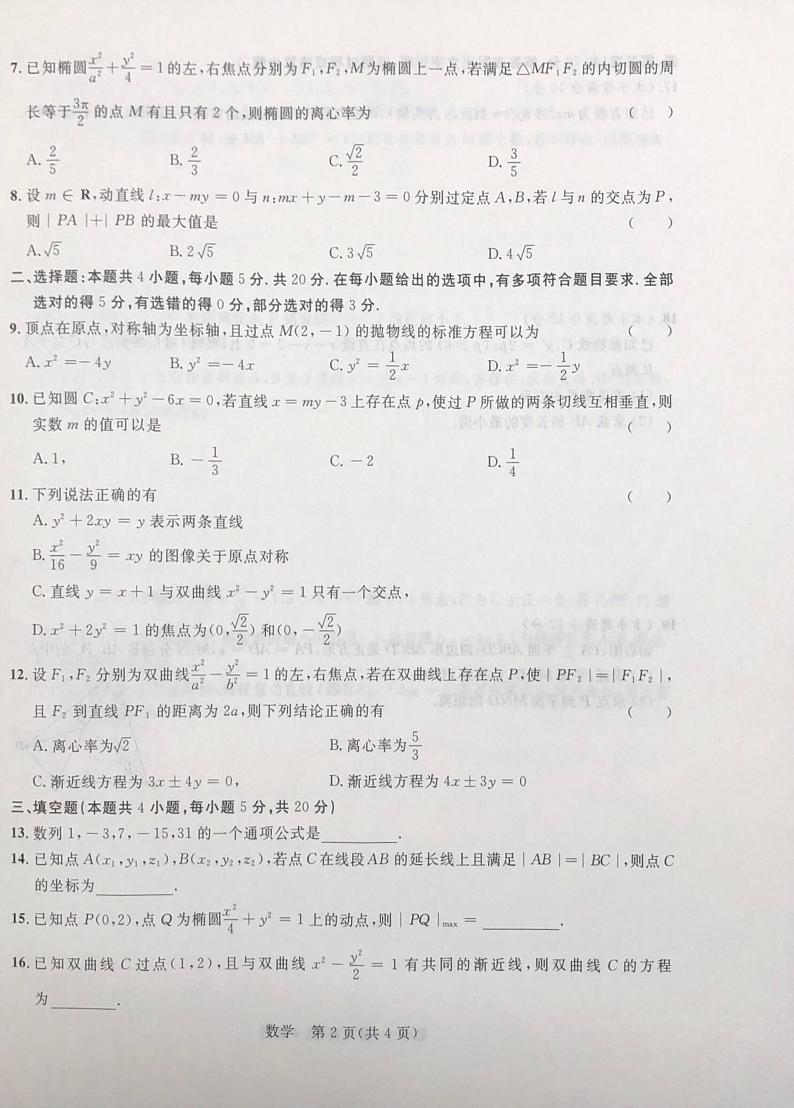 7. 已知椭圆x²/a²+y²/4=1的左,右焦点分别为F₁,F₂,M为椭圆上一点,若满足△MF₁F₂的内切圆的周
长等于3π/2的点M有且只有2个,则椭圆的离心率为 ( )
A. 2/5 B. 2/3 C. √2/2 D. 3/5
8. 设m∈R,动直线l:x-my=0与n:mx+y-m-3=0分别过定点A,B,若l与n的交点为P,
则|PA|+|PB的最大值是 ( )
A. √5 B. 2√5 C. 3√5 D. 4√5
二、选择题:本题共4小题,每小题5分.共20分.在每小题给出的选项中,有多项符合题目要求.全部
选对的得5分,有选错的得0分,部分选对的得3分.
9. 顶点在原点,对称轴为坐标轴,且过点M(2,-1)的抛物线的标准方程可以为 ( )
A. x²=-4y B. y²=-4x C. y²=1/2x D. x²=-1/2y
10. 已知圆C:x²+y²-6x=0,若直线x=my-3上存在点p,使过P所做的两条切线互相垂直,则
实数m的值可以是 ( )
A. 1, B. -1/3 C. -2 D. 1/4
11. 下列说法正确的有 ( )
A. y²+2xy=y表示两条直线
B. x²/16-y²/9=xy的图像关于原点对称
C. 直线y=x+1与双曲线x²-y²=1只有一个交点,
D. x²+2y²=1的焦点为(0,√2/2)和(0,-√2/2)
12. 设F₁,F₂分别为双曲线x²/a²-y²/b²=1的左,右焦点,若在双曲线上存在点P,使|PF₂|=|F₁F₂|,
且F₂到直线PF₁的距离为2a,则下列结论正确的有 ( )
A. 离心率为√2 B. 离心率为5/3
C. 渐近线方程为3x±4y=0, D. 渐近线方程为4x±3y=0
三、填空题(本题共4小题,每小题5分,共20分)
13. 数列1,-3,7,-15,31的一个通项公式是________.
14. 已知点A(x₁,y₁,z₁),B(x₂,y₂,z₂),若点C在线段AB的延长线上且满足|AB|=|BC|,则点C
的坐标为________.
15. 已知点P(0,2),点Q为椭圆x²/4+y²=1上的动点,则|PQ|max=________.
16. 已知双曲线C过点(1,2),且与双曲线x²-y²/2=1有共同的渐近线,则双曲线C的方程
为________.
数学 第2页(共4页)